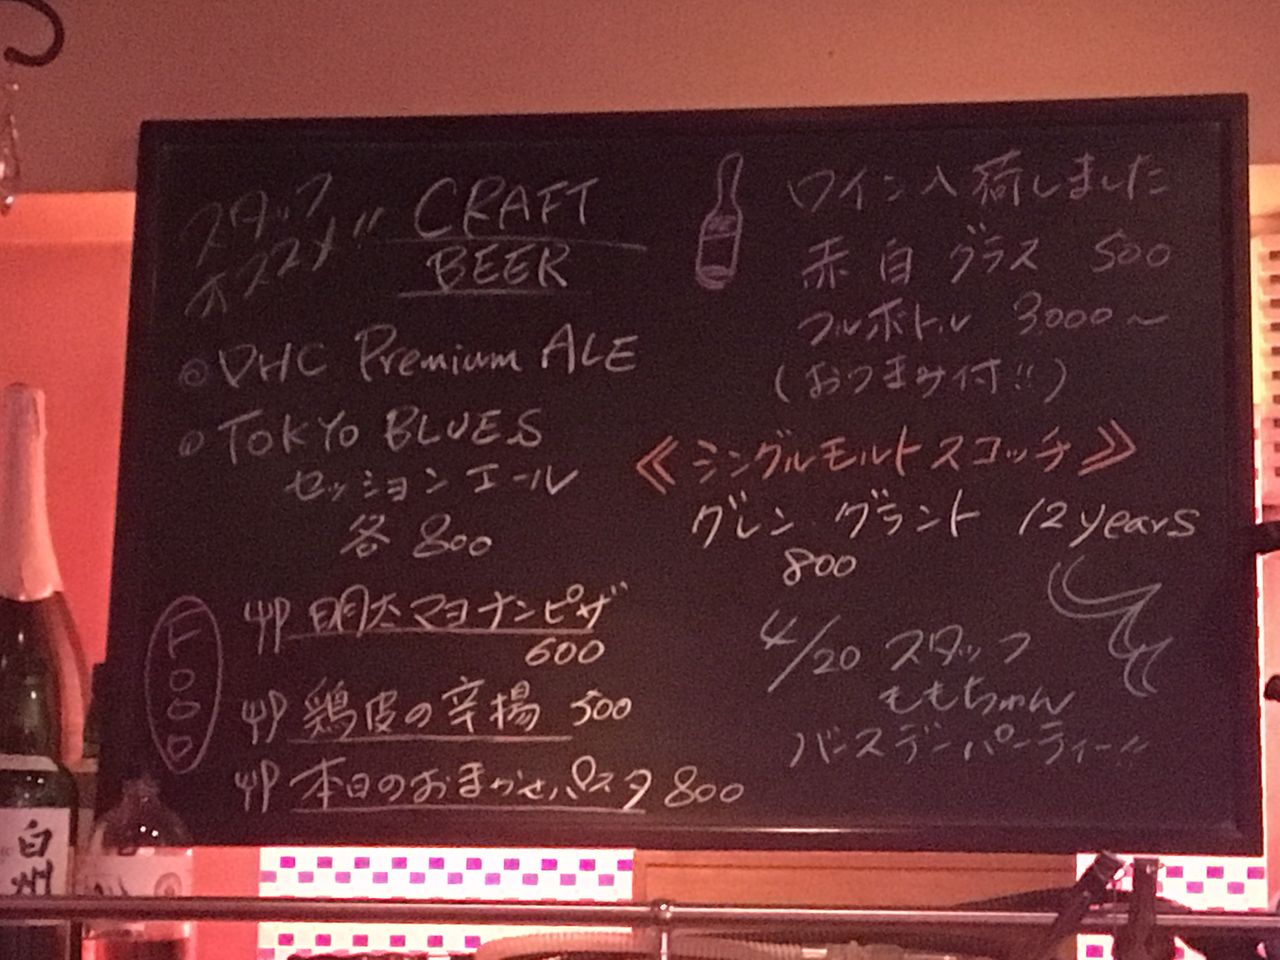 スタッフ
オススメ!!
CRAFT
BEER
◎ DHC Premium ALE
◎ TOKYO BLUES
セッションエール
各 800
FOOD
明太マヨナンピザ
600
鶏皮の辛揚 500
本日のおまかせパスタ 800
ワイン入荷しました
赤 白 グラス 500
フルボトル 3000〜
(おつまみ付!!)
《シングルモルトスコッチ》
グレン グラント 12 years
800
4/20 スタッフ
ももちゃん
バースデーパーティー!!
白州